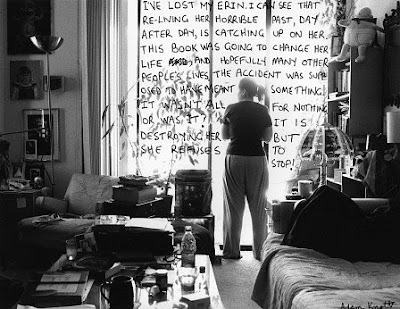 I'VE LOST MY ERIN. I CAN SEE THAT
RE-LIVING HER HORRIBLE PAST, DAY
AFTER DAY, IS CATCHING UP ON HER.
THIS BOOK WAS GOING TO CHANGE HER
LIFE AND, AND HOPEFULLY MANY OTHER
PEOPLE'S LIVES. THE ACCIDENT WAS SUPP
OSED TO HAVE MEANT SOMETHING!
IT WASN'T ALL FOR NOTHING
OR WAS IT? IT IS
DESTROYING HER BUT
SHE REFUSES TO
STOP!
Adam Knott